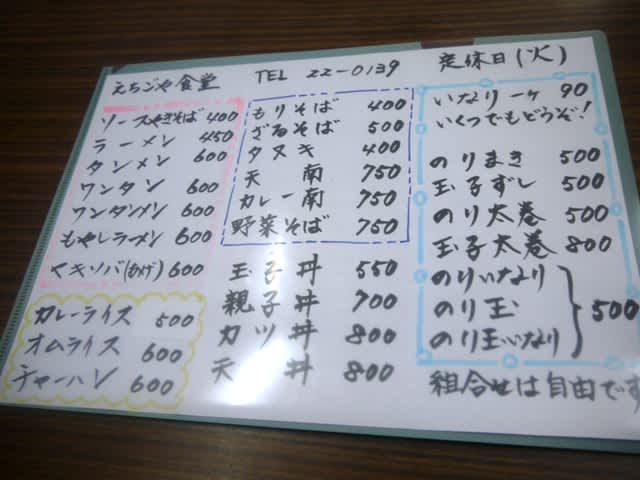 えちごや食堂 TEL 22-0139 定休日(火)
ソースやきそば 400
ラーメン 450
タンメン 600
ワンタン 600
ワンタンメン 600
もやしラーメン 600
ヤキソバ(カタアゲ) 600
カレーライス 500
オムライス 600
チャーハン 600
もりそば 400
ざるそば 500
タヌキ 400
天南 750
カレー南 750
野菜そば 750
玉子丼 550
親子丼 700
カツ丼 800
天丼 800
いなり一ヶ 90
いくつでもどうぞ!
のりまき 500
玉子ずし 500
のり太巻 500
玉子太巻 800
のりいなり
のり玉 500
のり玉いなり
組合せは自由です